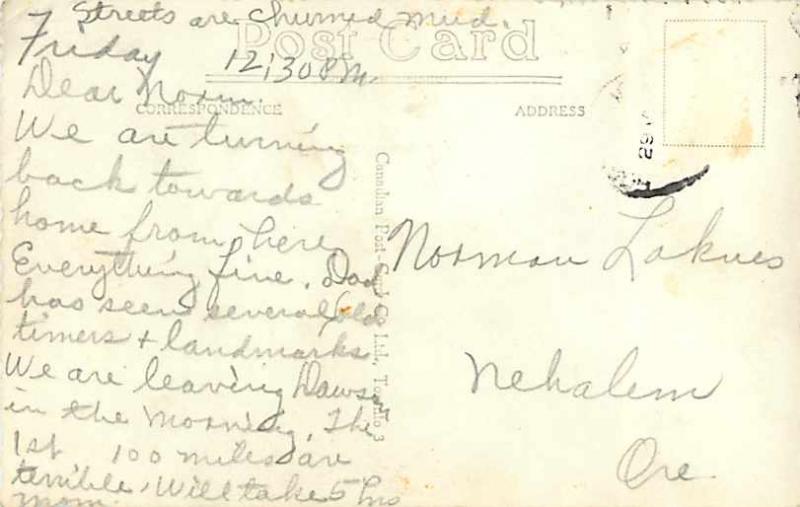 Streets are churned mud.
Post Card
Friday 12,30 PM
Dear Norm.
CORRESPONDENCE
ADDRESS
We are turning
back towards
home from here
Everything fine. Dad
has seen several old
timers + landmarks
We are leaving Dawson
in the morning, The
1st 100 miles are
terrible, Will take 5 hrs
Mom.
Canadian Post-Card Co. Ltd., Toronto 3
Norman
Nehalem
Ore.